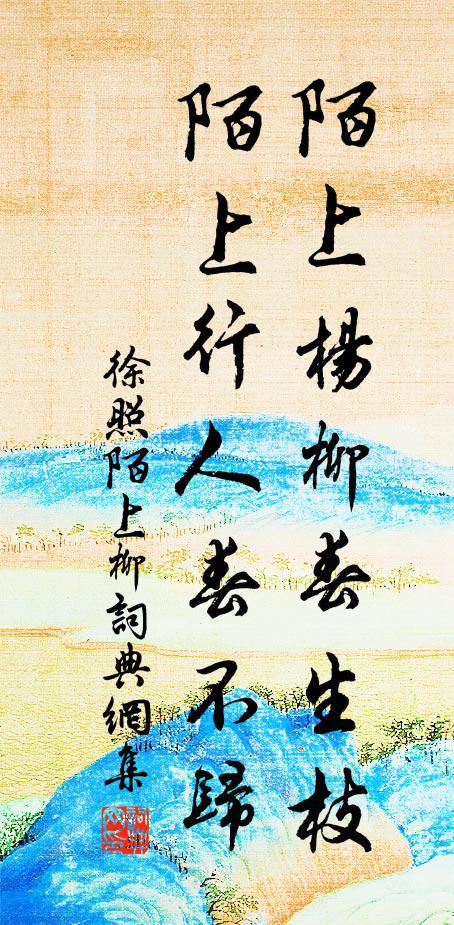 陌上楊柳春生枝
陌上行人春不歸
徐照陌上柳詞典網集